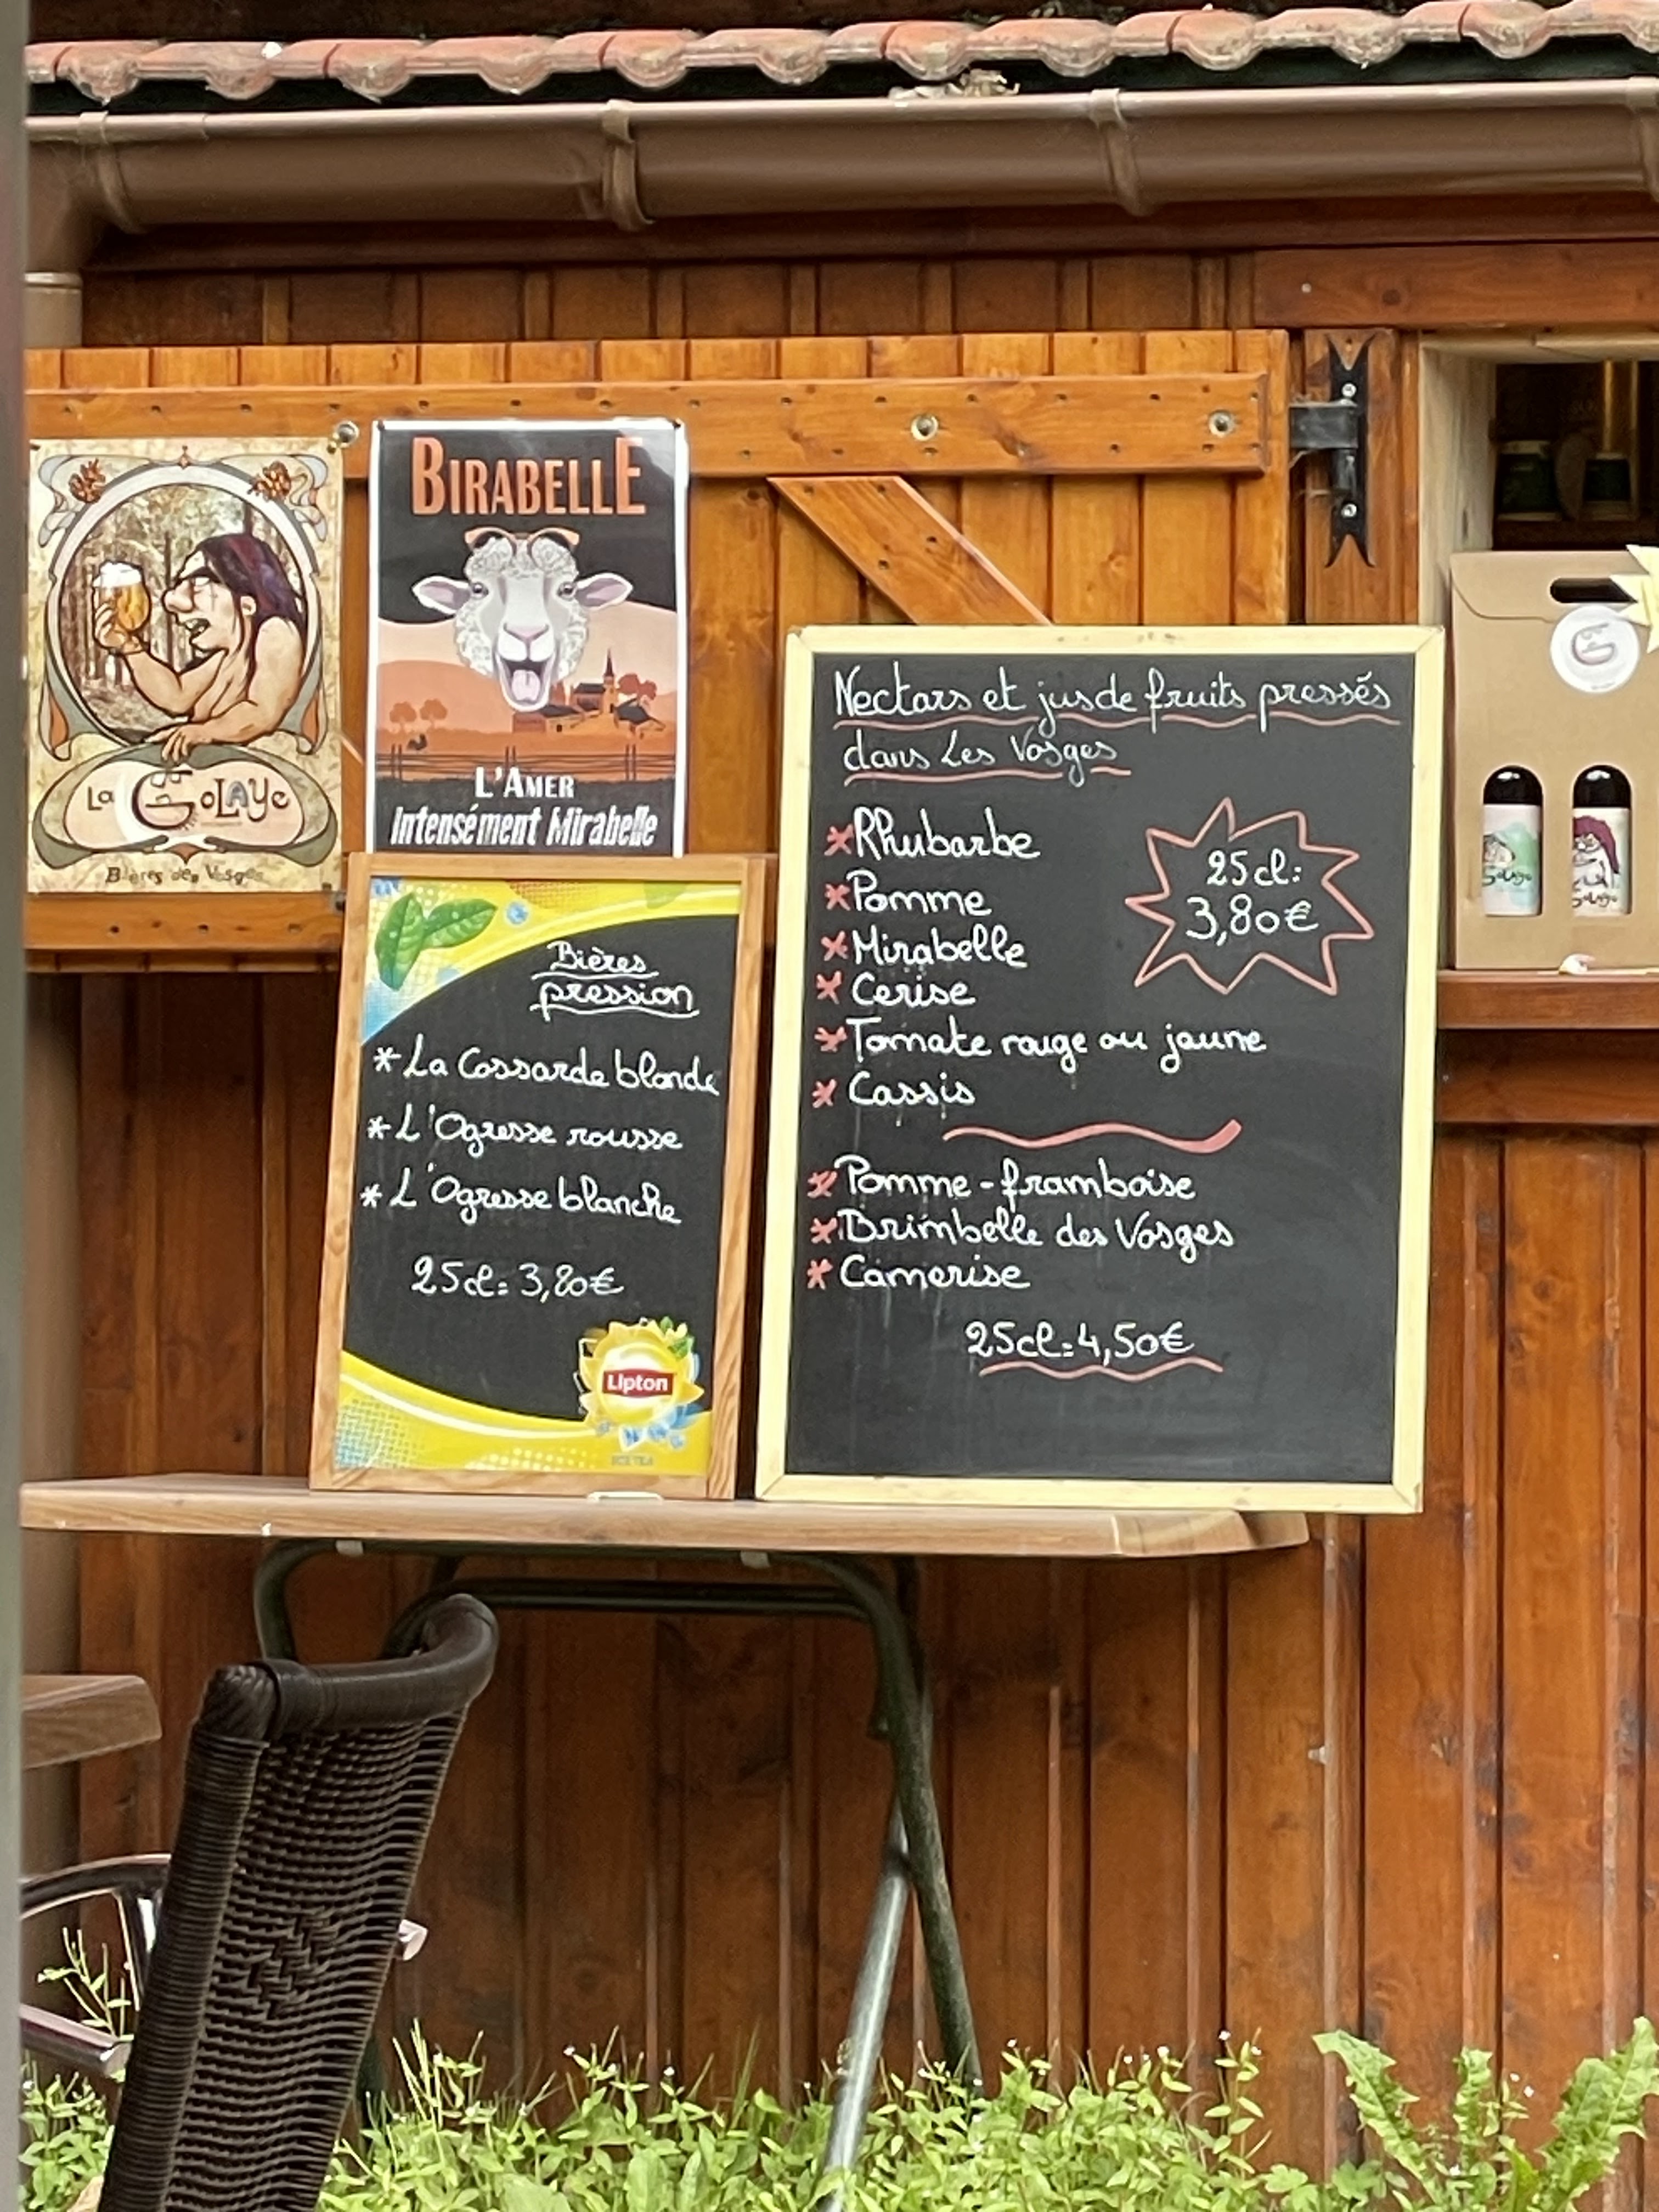 La Golaye
Bières des Vosges
BIRABELLE
L'AMER
Intensément Mirabelle
Bières
pression
* La Cossarde blonde
* L'Ogresse rousse
* L'Ogresse blanche
25cl = 3,80€
Lipton
ICE TEA
Nectars et jus de fruits pressés
dans Les Vosges
* Rhubarbe
* Pomme
* Mirabelle
* Cerise
* Tomate rouge ou jaune
* Cassis
25cl =
3,80€
* Pomme - framboise
* Brimbelle des Vosges
* Camerise
25cl = 4,50€
Golaye
Golaye